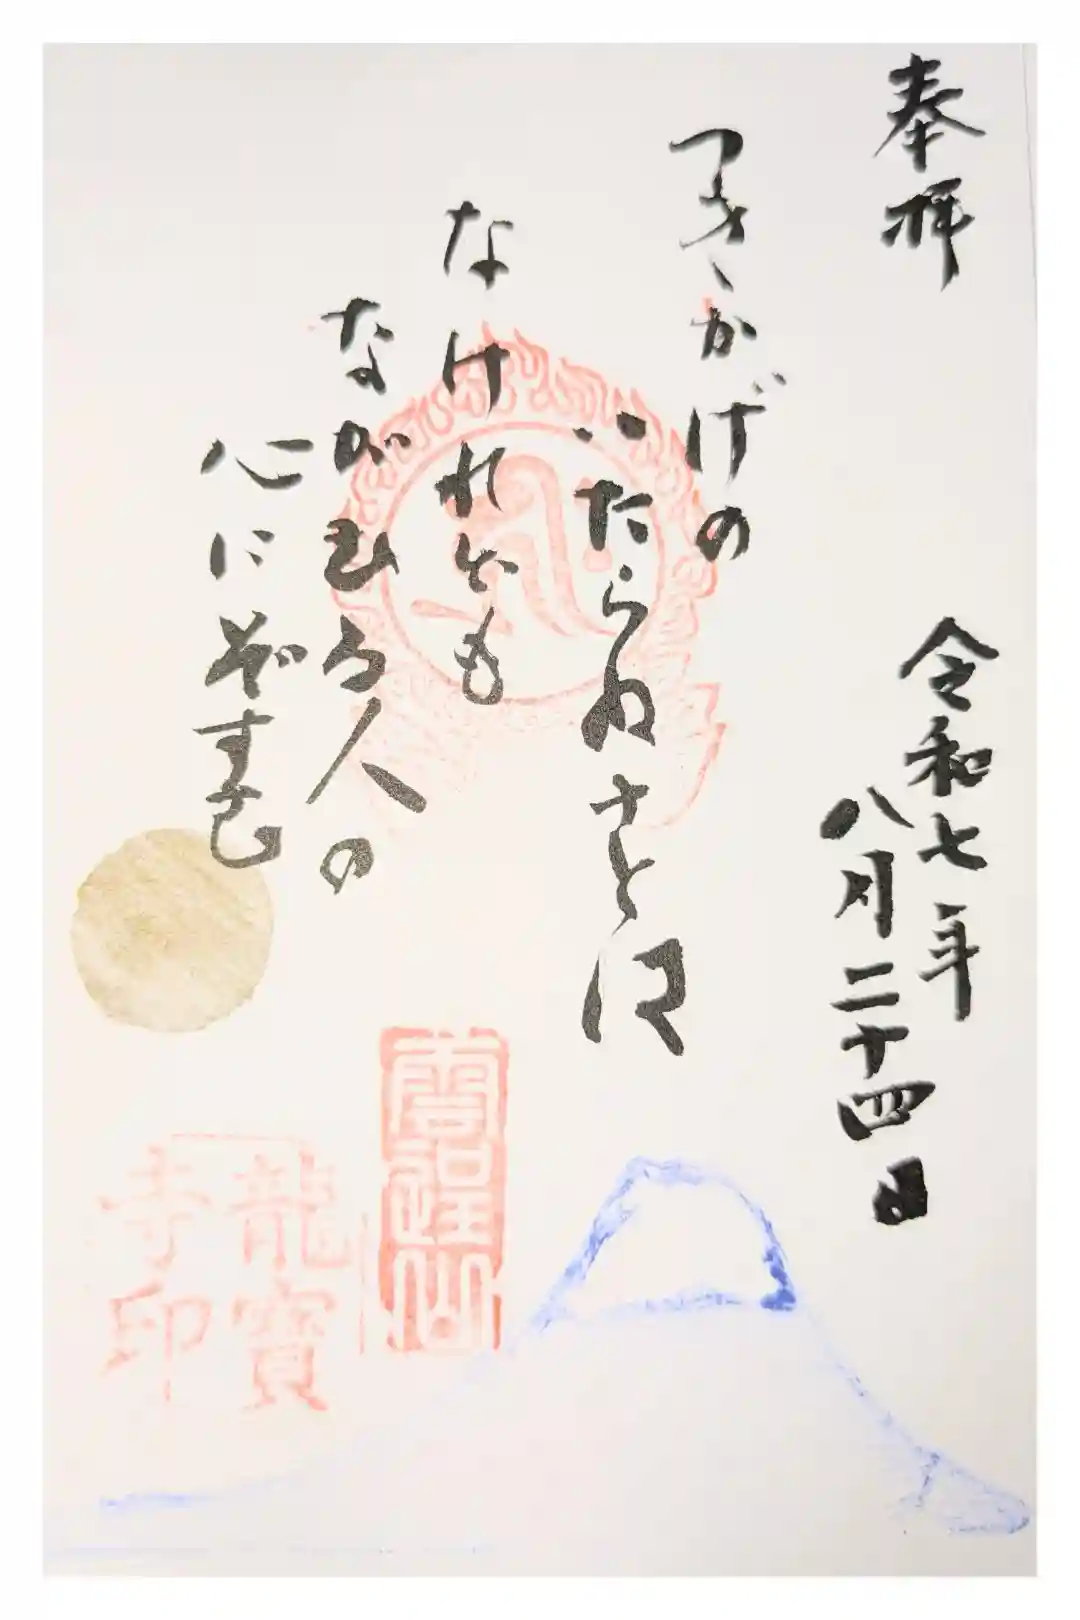 奉拝
令和七年
八月二十四日
つきかげの
いたらぬさとは
なけれども
ながむる人の
心にぞすむ
龍寶
寺印